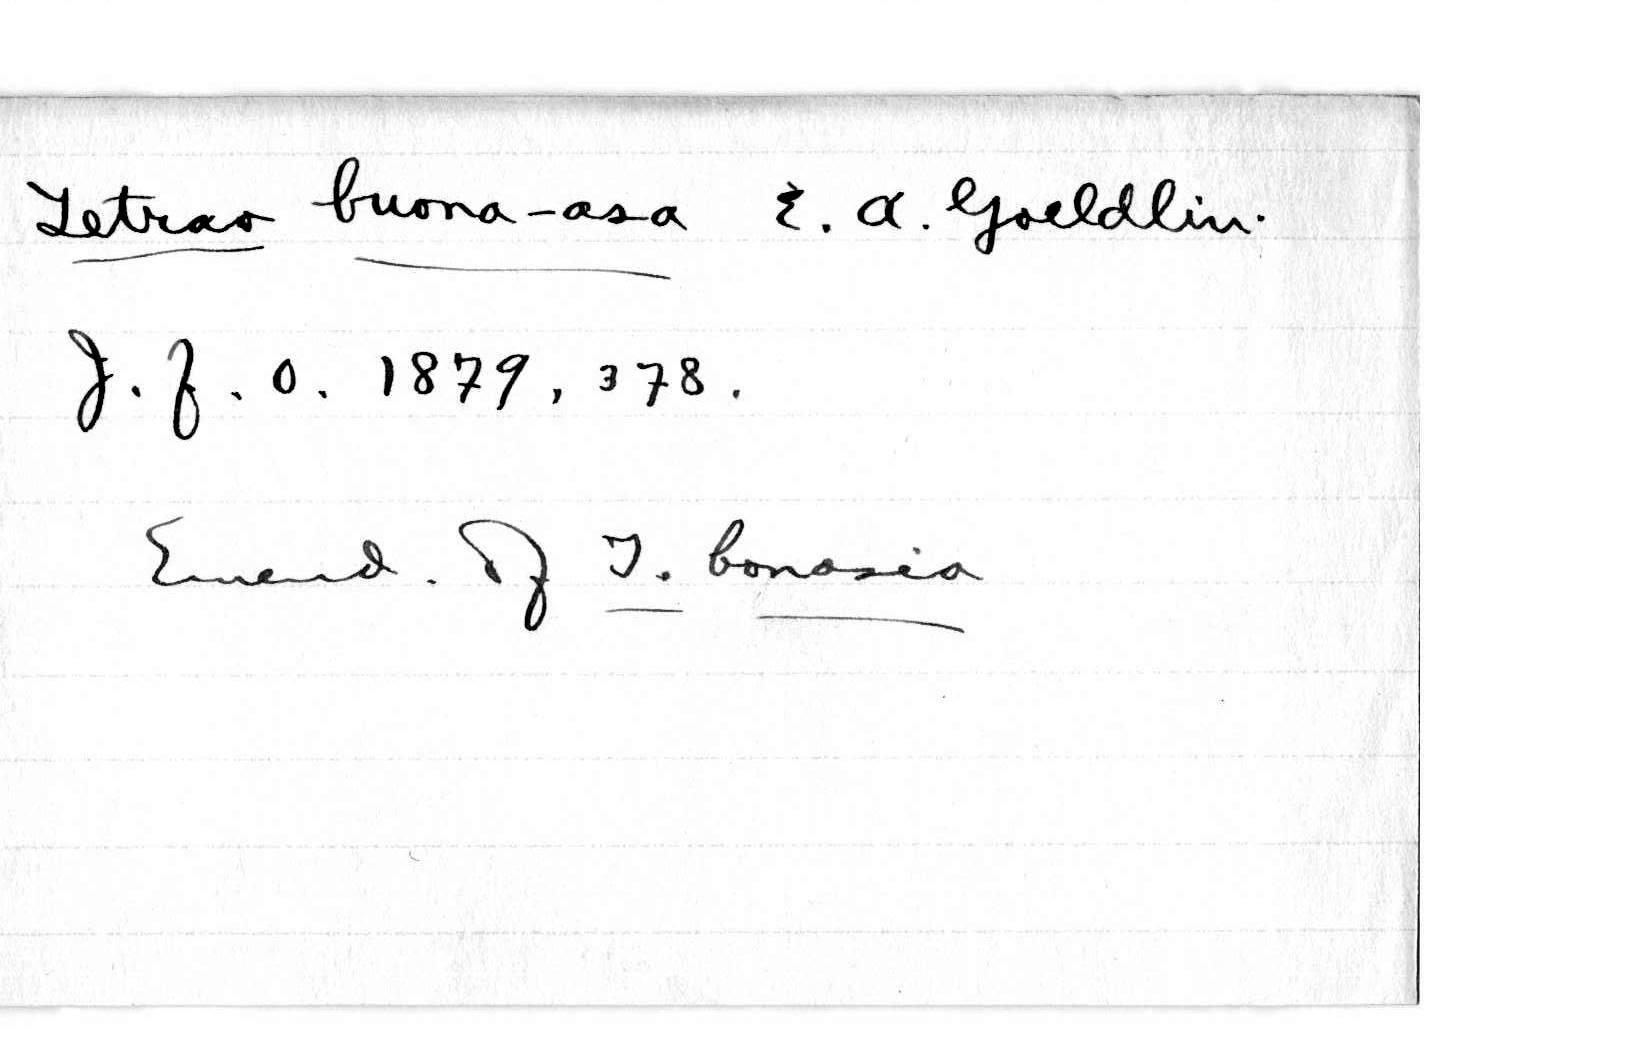 Tetrao buona-asa E. A. Goeldlin.
J. f. O. 1879, 378.
Emend. of T. bonasia